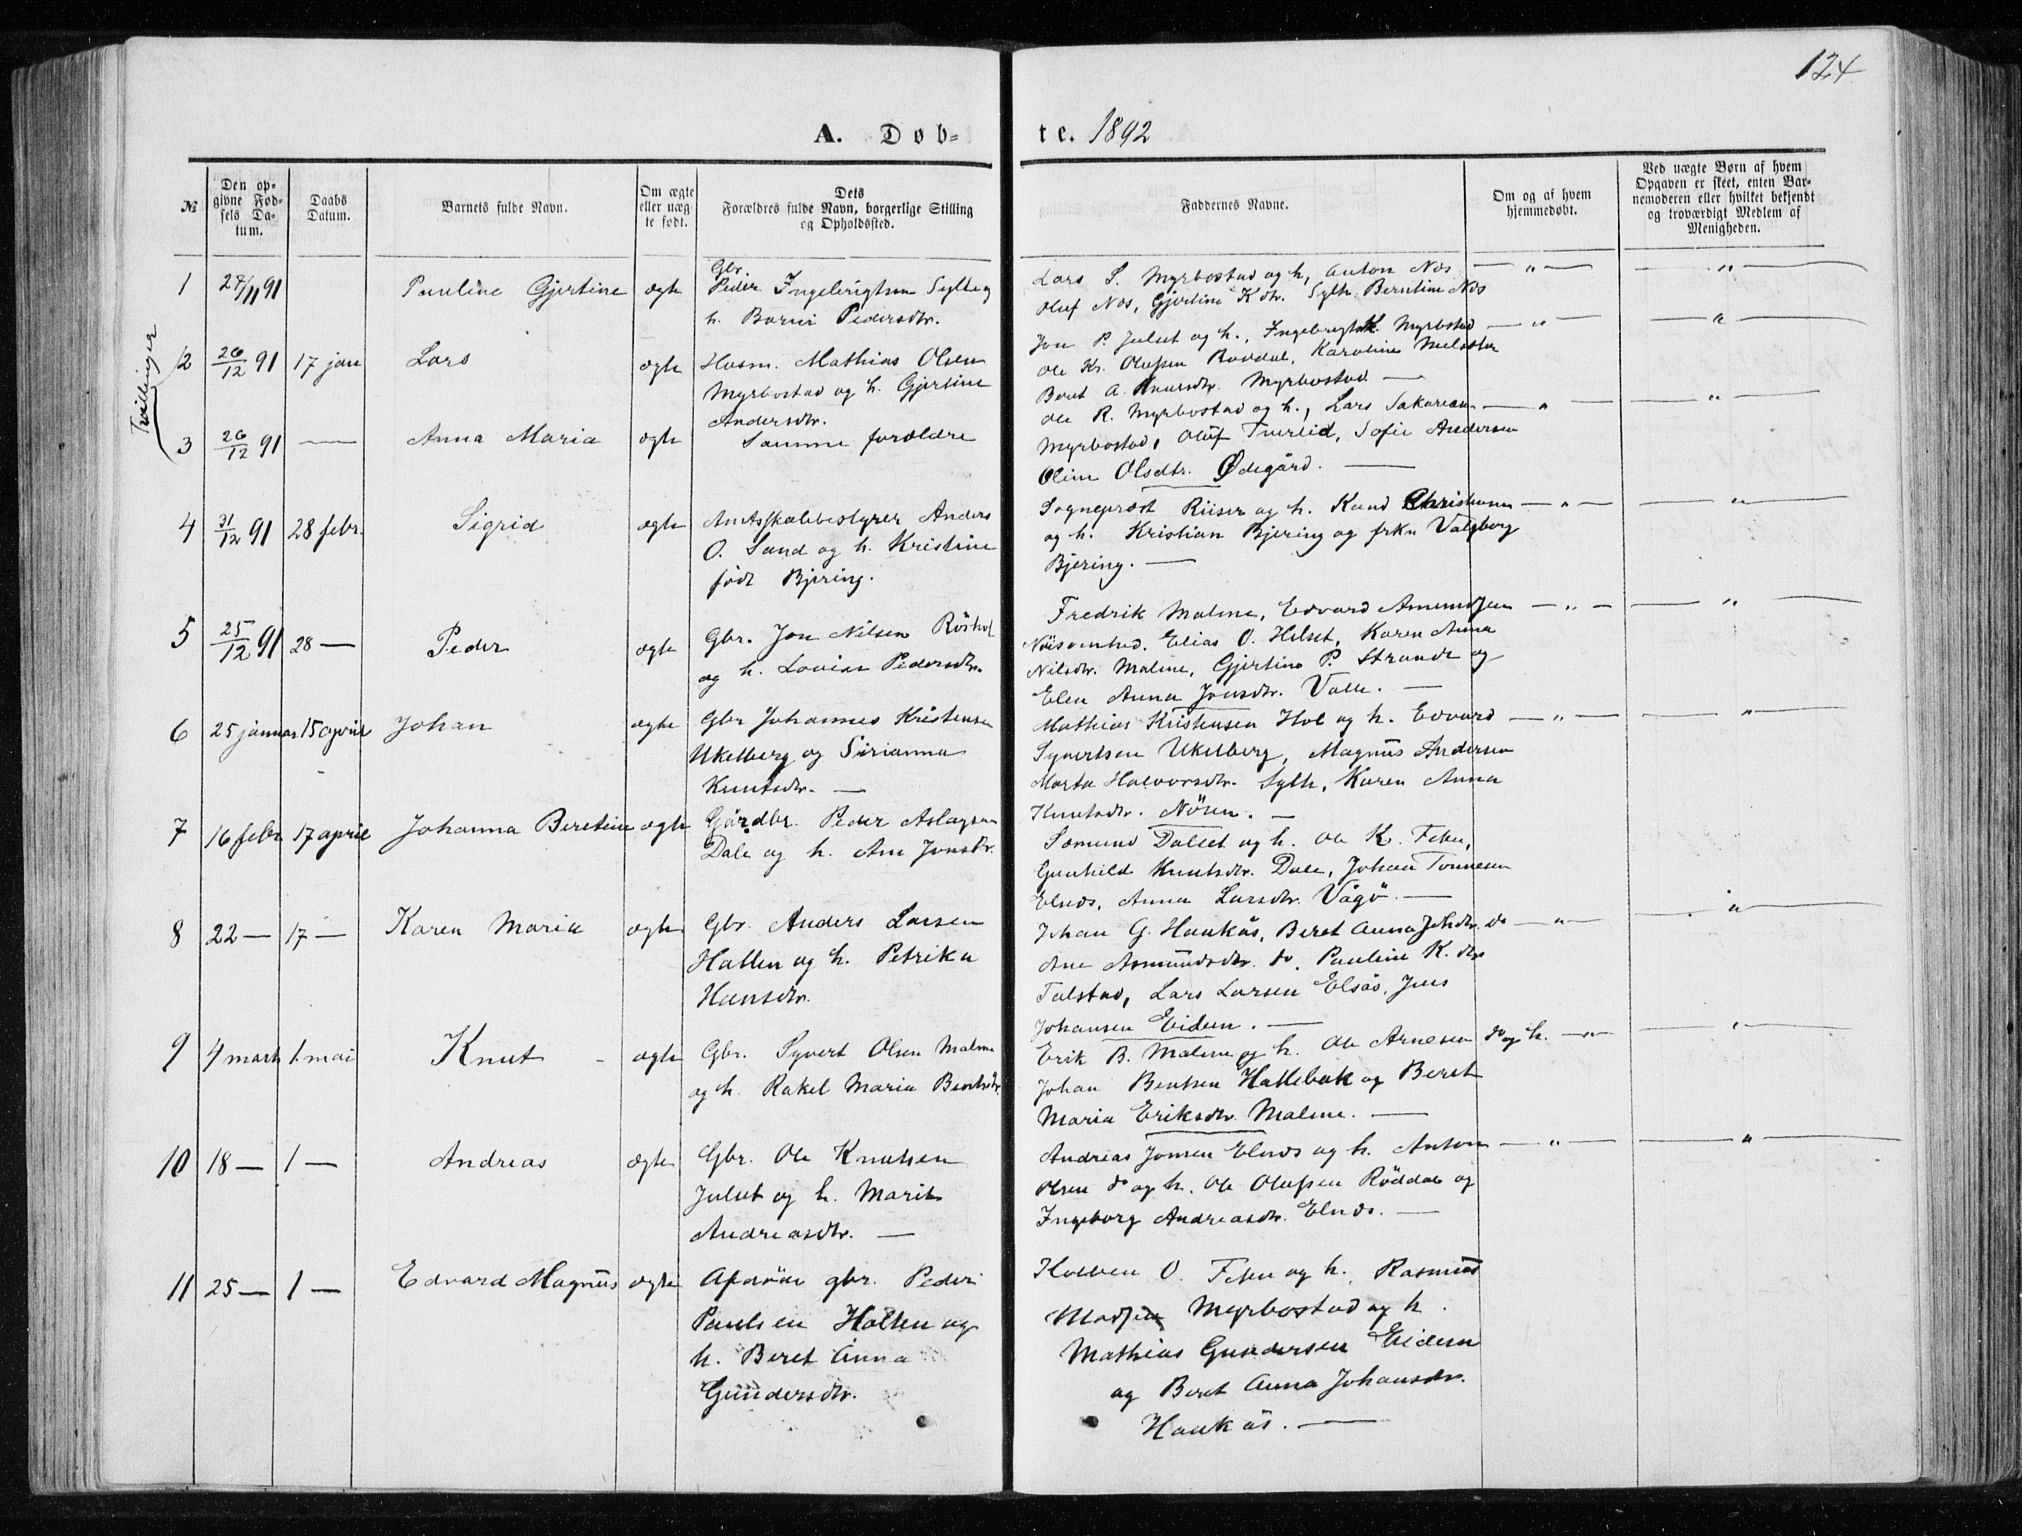 124
A. Døb-
te. 1892
№
Den op-
givne Fød-
sels Da-
tum.
Daabs
Datum.
Barnets fulde Navn.
Om ægte
eller uæg-
te født.
Dets
Forældres fulde Navn, borgerlige Stilling
og Opholdssted.
Faddernes Navne.
Om og af hvem
hjemmedøbt.
Ved uægte Børn af hvem
Opgaven er skeet, enten Bar-
nemoderen eller hvilket bekjendt
og troværdigt Medlem af
Menigheden.
1
91
Pauline Gjertine
ægte
Gbr.
Peder Ingebrigtsen Sylte og
h. Pedersdtr.
Lars S. Myrbostad og h, Anton Nøs
Oluf Nøs, Gjertine K dtr. Sylte Berntine Nøs
Tvillinger
2
26/12 91
17 jan
Lars
ægte
Husm. Mathias Olsen
Myrbostad og h. Gjertine
Andersdtr.
Jon P. Julset og h., Myrbostad
Ole Kr. Olufsen Røddal, Karoline
Beret A. Knutsdtr. Myrbostad. —
3
26/12 91
—
Anna Maria
ægte
Samme forældre
Ole R. Myrbostad og h., Lars Sakarias
Myrbostad, Oluf Tverlid, Sofie Andersen
Oline Olsdtr. Ødegård. —
4
31/12 91
28 febr.
Sigrid
ægte
Amtsskolebestyrer Anders
O. Sand og h. Kristine
født Bjering.
Sogneprest Riiser og h. Knud Christensen
og h. Kristian Bjering og frkn Valborg
Bjering. —
5
25/12 91
28 —
Peder
ægte
Gbr. Jon Nilsen Röshol
og h. Lovise Pedersdtr.
Fredrik Malme, Edvard Amundsen
Nøisomhed, Elias O. Hilset, Karen Anna
Nilsdtr. Malme, Gjertine P. Strande og
Elen Anna Jonsdtr. Valle. —
6
25 januar
15 april
Johan
ægte
Gbr Johannes Kristensen
Ukelberg og Sirianna
Knutsdtr. —
Mathias Kristensen Hol og h. Edvard
Syvertsen Ukelberg, Magnus Andersen
Marta Halvorsdtr. Sylte, Karen Anna
Knutsdtr. Nösen. —
7
16 febr
17 april
Johanna Beretine
ægte
Gårdbr. Peder Aslagsen
Dale og h. Ane Jonsdtr.
Sømund Dallet og h. Ole K. Feten,
Gunhild Knutsdtr. Dale, Johan Tønnesen
Elnes, Anna Larsdtr. Vågö. —
8
22 —
17 —
Karen Maria
ægte
Gbr. Anders Larsen
Hatlen og h. Petrika
Hansdtr.
Johan G. Haukås, Beret Anna Johdtr. do
Ane Asmundsdtr. do. Pauline K. dtr
Talstad, Lars Larsen Elsås, Jens
Johansen Eiden. —
9
4 marts
1 mai
Knut
ægte
Gbr. Syvert Olsen Malme
og h. Rakel Maria Bentsdtr.
Erik B. Malme og h. Ole Arnesen do og h.
Johan Bentsen Hallebak og Beret
Maria Eriksdtr Malme. —
10
18 —
1 —
Andreas
ægte
Gbr. Ole Knutsen
Julset og h. Marit
Andreasdtr. —
Andreas Jonsen Elnes og h. Anton
Olsen do og h. Ole Olufsen Röddal og
Ingeborg Andreasdtr. Elnes. —
11
25 —
1 —
Edvard Magnus
ægte
Afdöde gbr. Peder
Paulsen Hatlen og
h. Beret Anna
Gundersdtr.
Kolben O. Feten og h. Rasmus
Madsen Myrbostad og h.
Mathias Gundersen Eidem
og Beret Anna Johansdtr.
Haukås. —